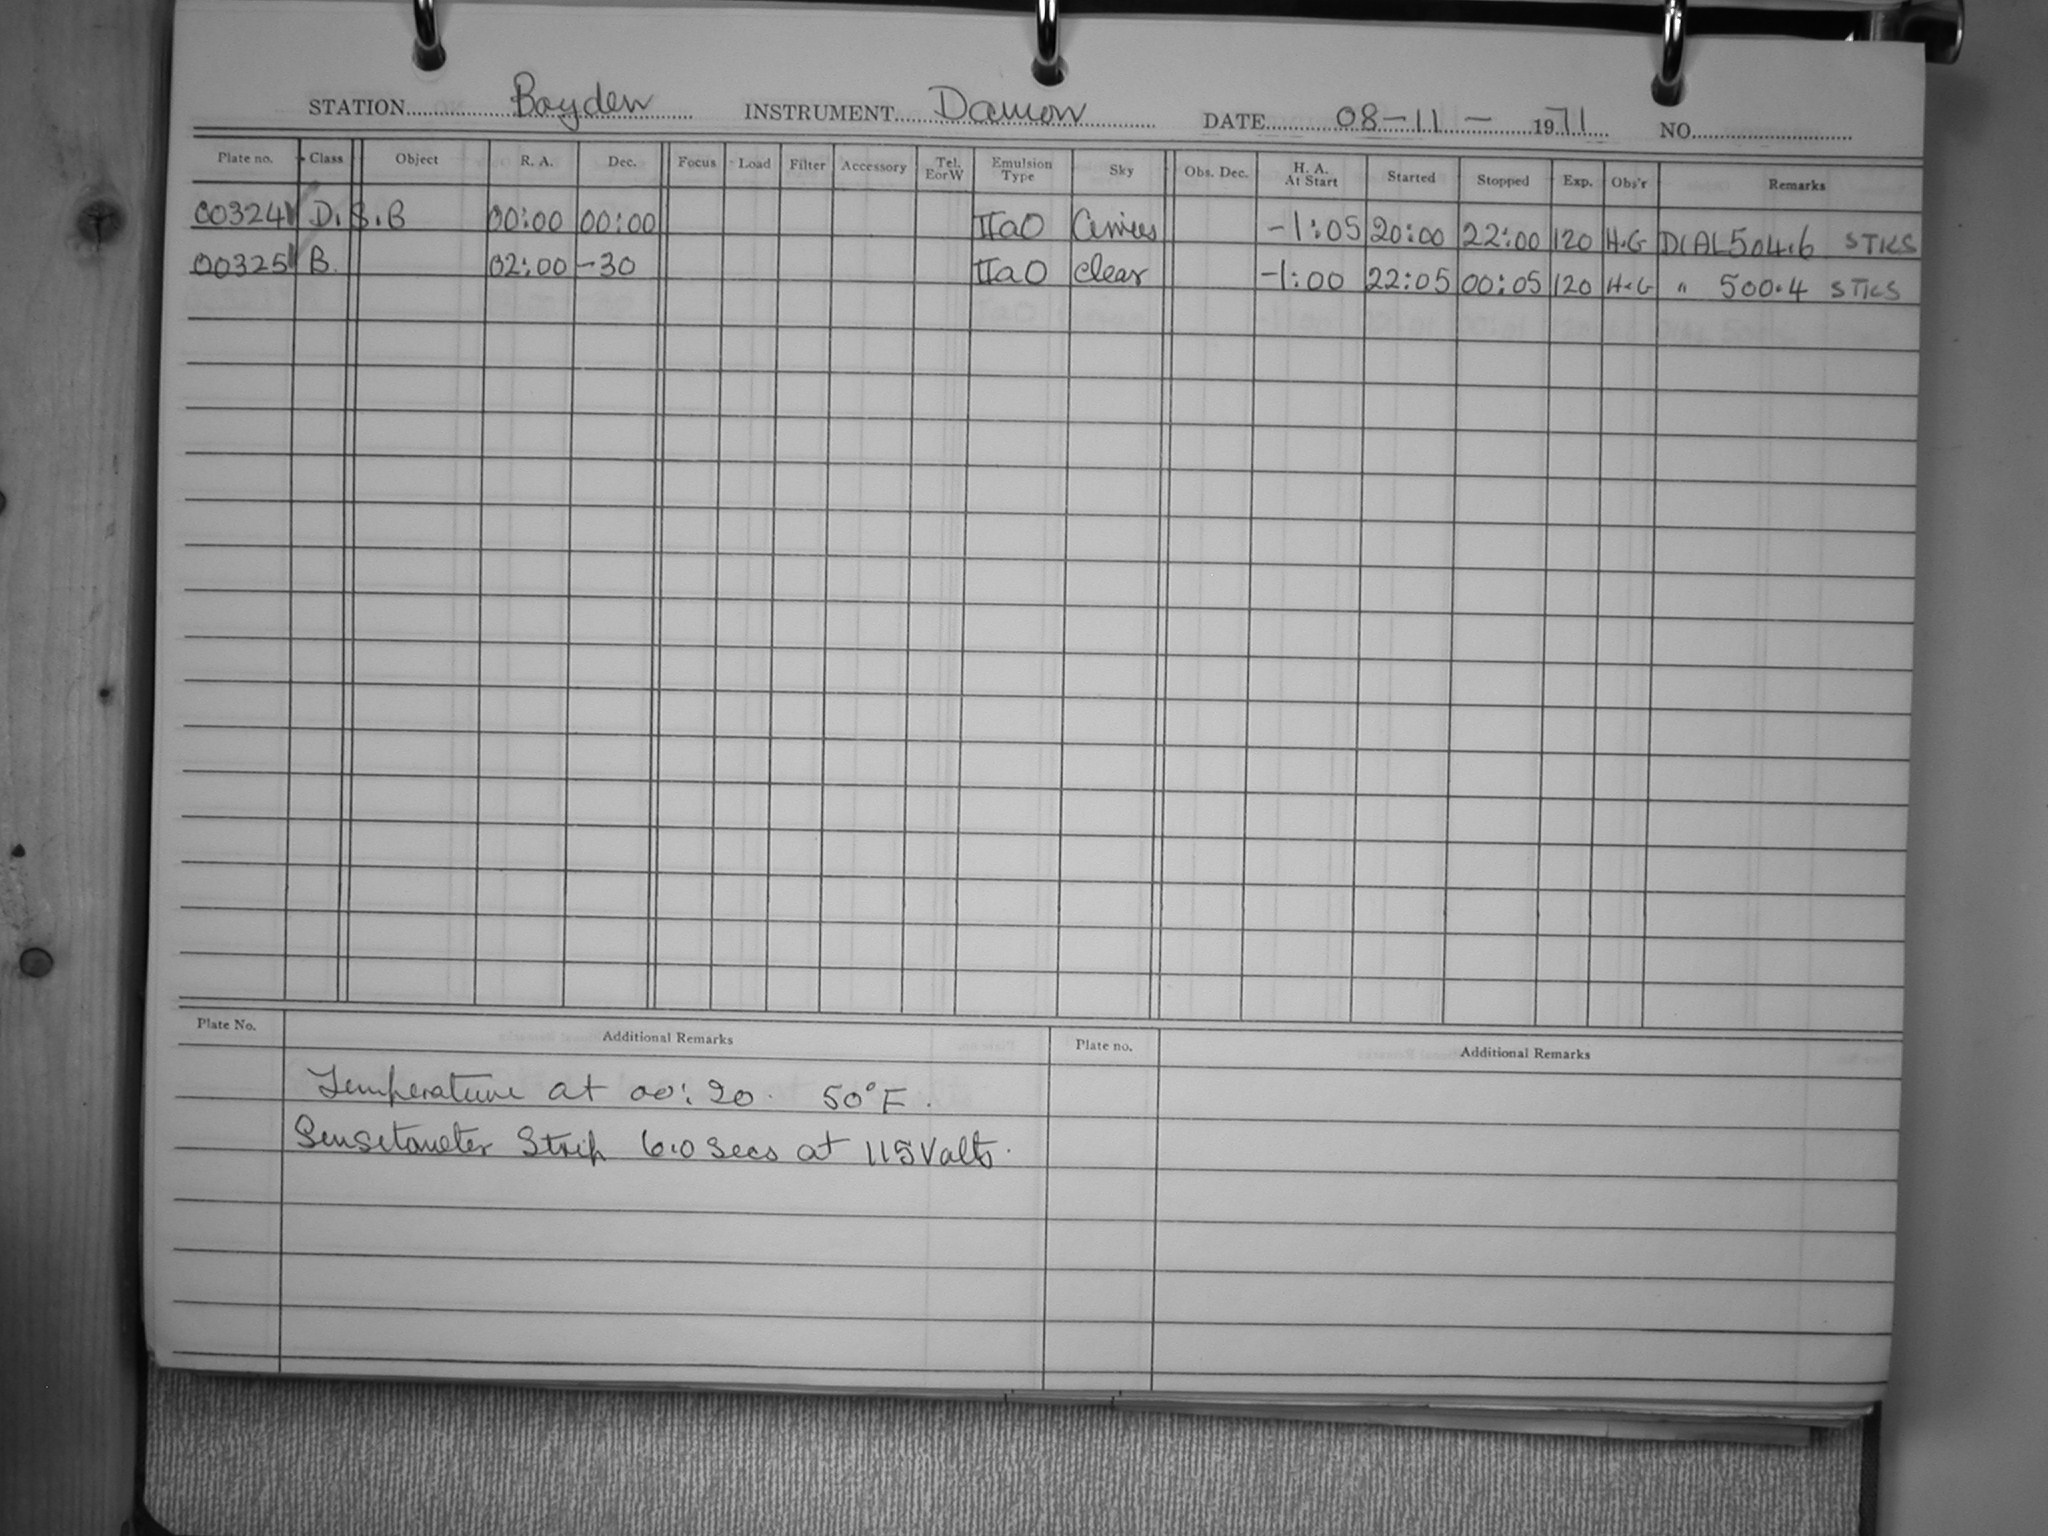 STATION Boyden INSTRUMENT Damon DATE 08-11- 1971 NO.
Plate no. Class Object R. A. Dec. Focus Load Filter Accessory Tel. EorW Emulsion Type Sky Obs. Dec. H. A. At Start Started Stopped Exp. Obs'r Remarks
00324 D.S.B 00:00 00:00 IIaO Cirrus -1:05 20:00 22:00 120 H.G DIAL 504.6 STKS
00325 B. 02:00 -30 IIaO clear -1:00 22:05 00:05 120 H.G " 500.4 STKS
Plate No. Additional Remarks Plate no. Additional Remarks
Temperature at 00:20. 50°F.
Sensitometer Strip 6.0 secs at 115 Volts.